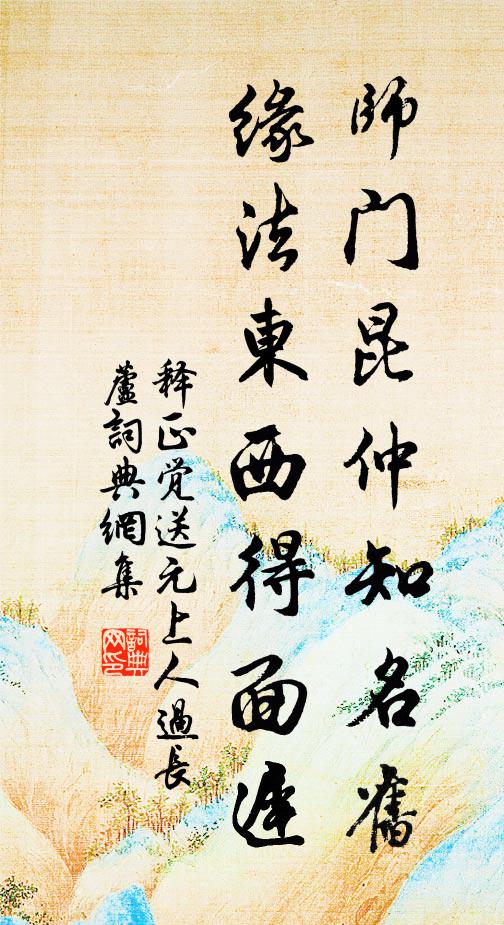 師门昆仲知名舊
緣法東西得面遲
释正覚送元上人過長
蘆詞典網集
詞典
网印